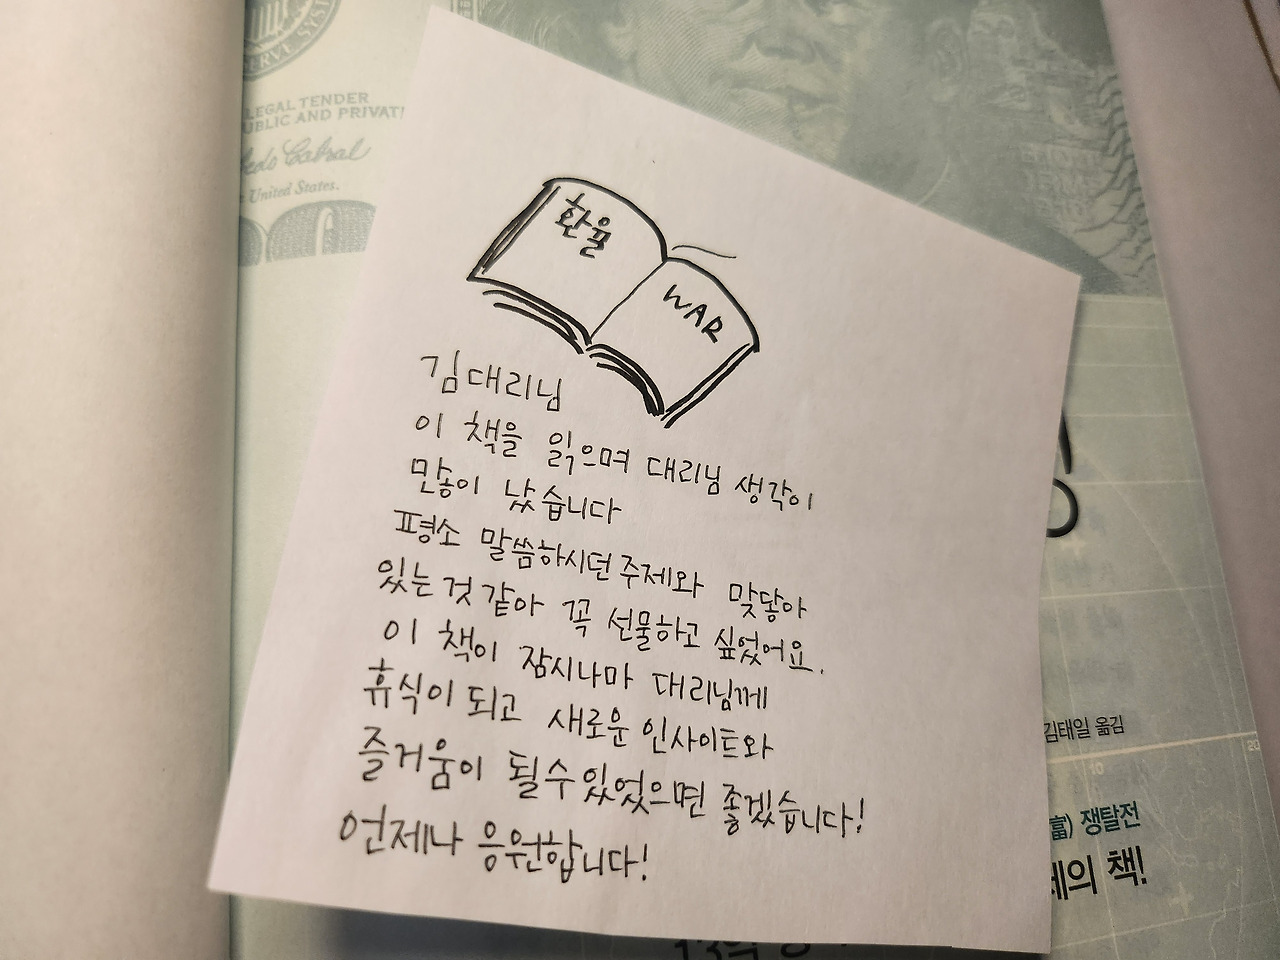 ERVE SYS
LEGAL TENDER
UBLIC AND PRIVAT
Cabral
United States.
환율
WAR
김대리님
이 책을 읽으며 대리님 생각이
만이 났습니다
평소 말씀하시던 주제와 맞닿아
있는 것 같아 꼭 선물하고 싶었어요.
이 책이 잠시나마 대리님께
휴식이 되고 새로운 인사이트와
즐거움이 될 수 있었으면 좋겠습니다!
언제나 응원합니다!
김태일 옮김
20
10
富) 쟁탈전
의 책!